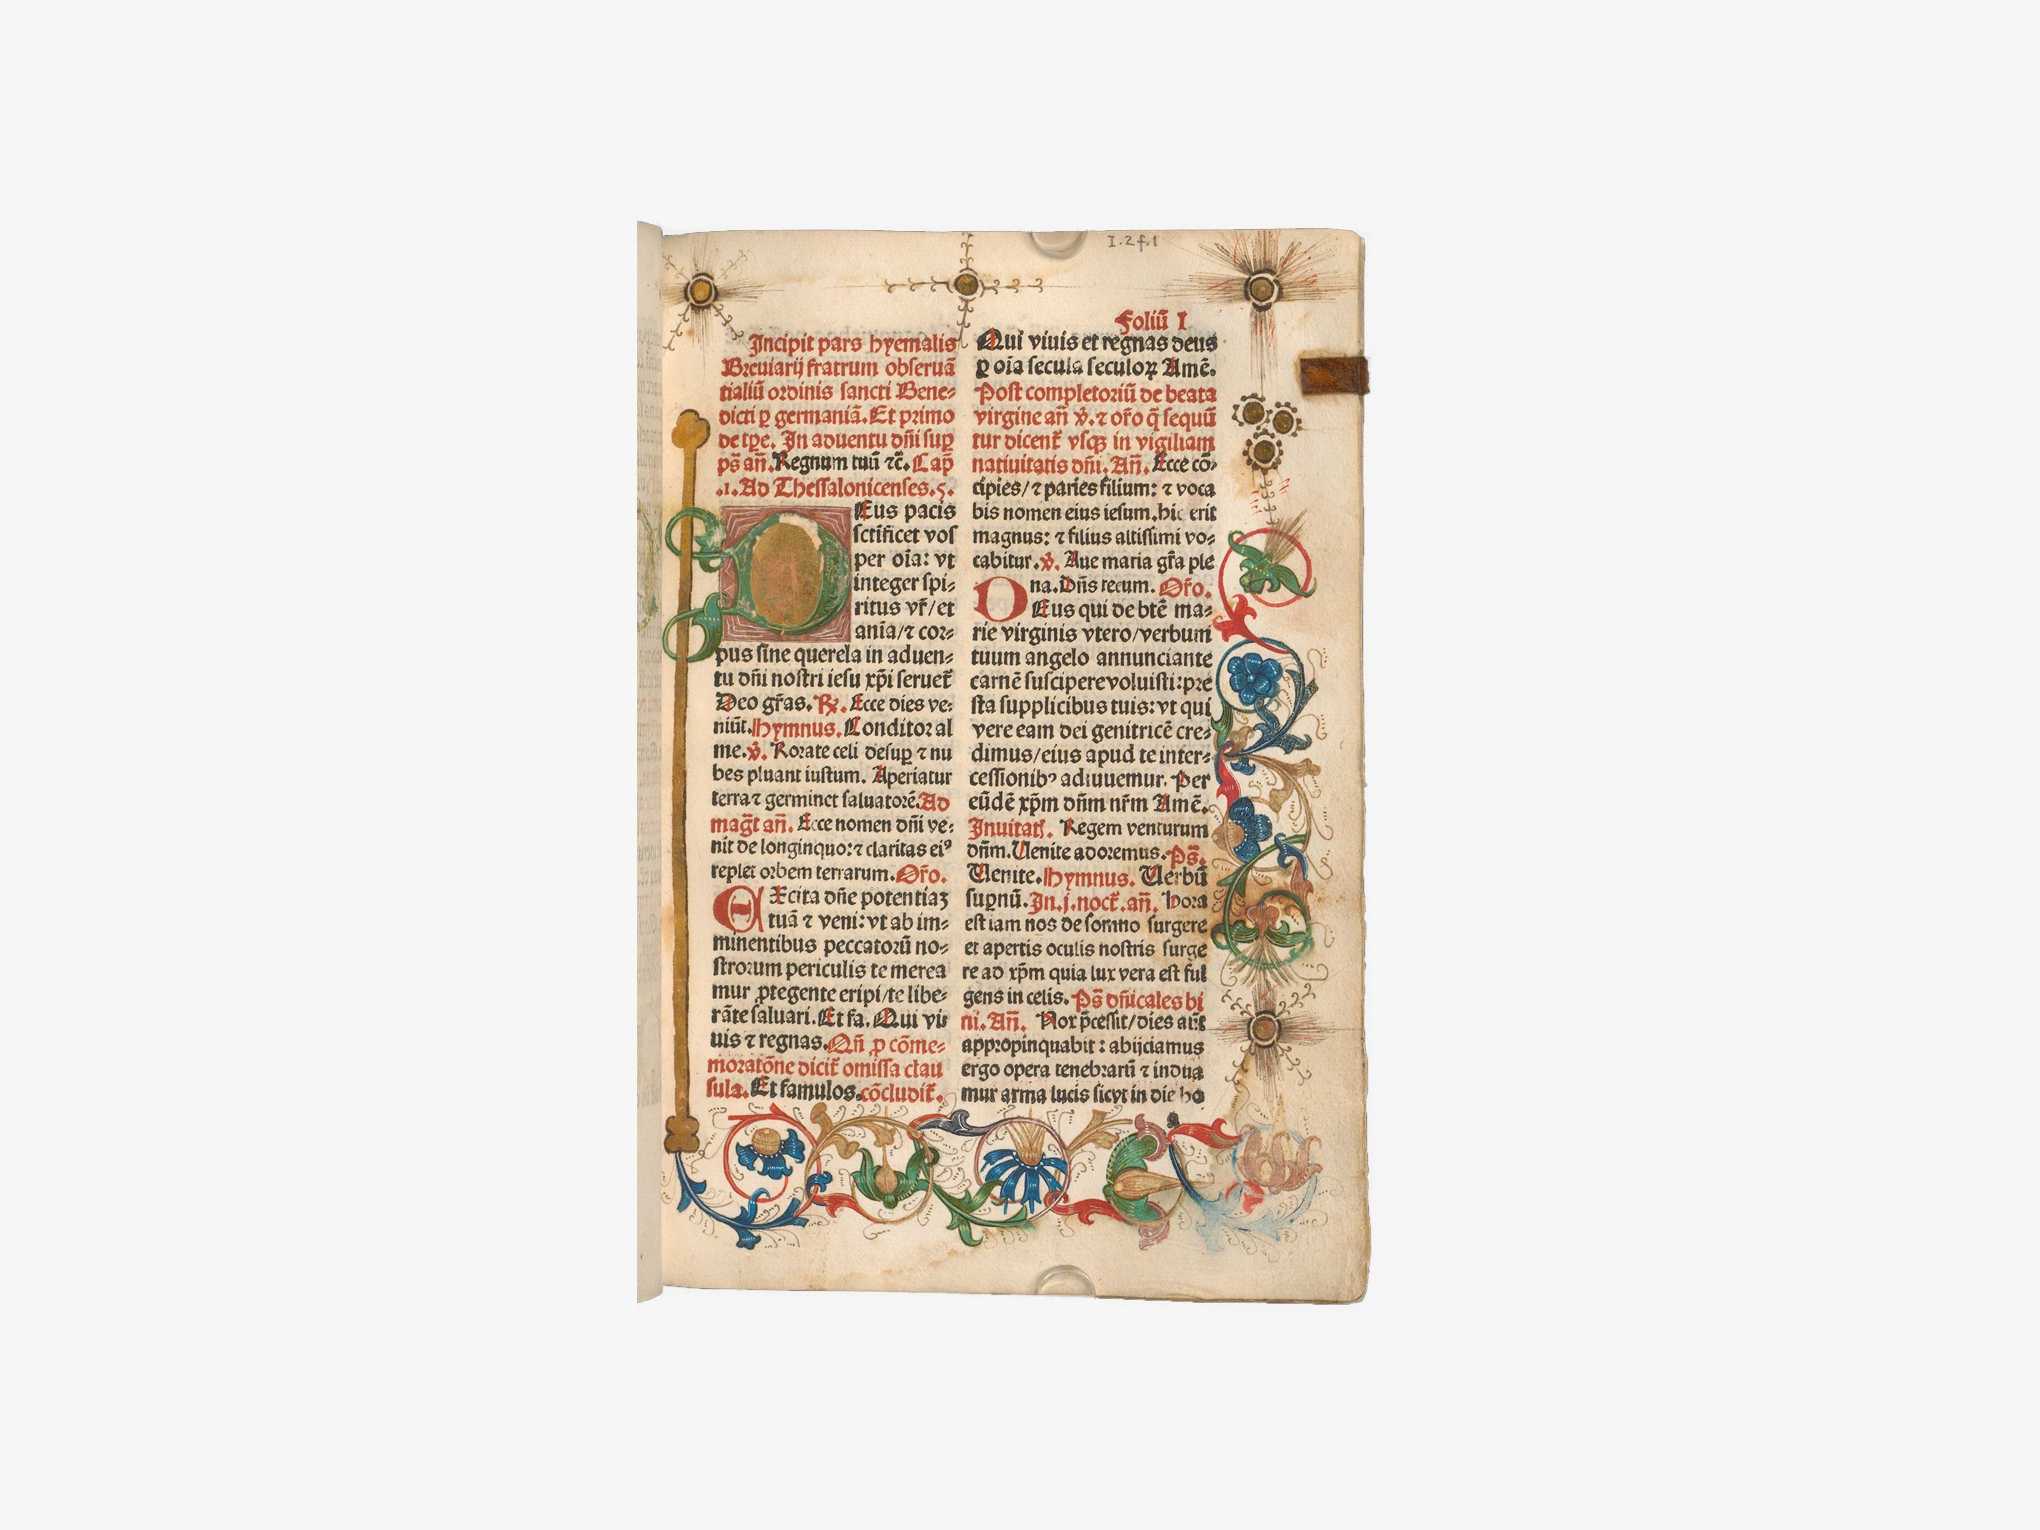 I.2f.1
Foliū I
Incipit pars hyemalis
Breuiarij fratrum obseruā
tialiū ordinis sancti Bene-
dicti ꝑ germaniā. Et primo
de tꝑe. In aduentu dn̄i suꝑ
ps̄ an̄. Regnum tuū ⁊c̄. Cap̄
.1. Ad Thessalonicenses.5.
DEus pacis
sctificet vos
per oīa: vt
integer spi-
ritus vr̄/et
anīa/⁊ cor-
pus sine querela in aduen-
tu dn̄i nostri iesu xp̄i seruet̄
Deo gr̄as. ℟. Ecce dies ve-
niūt. Hymnus. Conditor al
me. ℣. Rorate celi desuꝑ ⁊ nu
bes pluant iustum. Aperiatur
terra ⁊ germinet saluatorē. Ad
maḡt an̄. Ecce nomen dn̄i ve-
nit de longinquo: ⁊ claritas eiꝰ
replet orbem terrarum. Or̄o.
EXcita dn̄e potentiaꝫ
tuā ⁊ veni: vt ab im-
minentibus peccatorū no-
strorum periculis te merea
mur ꝓtegente eripi/te libe-
rāte saluari. Et fa. Qui vi-
uis ⁊ regnas. Qn̄ ꝓ cōme-
moratōne dicit̄ omissa clau
sula. Et famulos. cōcludit̄.
Qui viuis et regnas deus
ꝑ oīa secula seculoꝝ Amē.
Post completoriū de beata
virgine an̄ ℣. ⁊ or̄o q̄ sequū
tur dicent̄ vsqꝫ in vigiliam
natiuitatis dn̄i. An̄. Ecce cō-
cipies/⁊ paries filium: ⁊ voca
bis nomen eius iesum. hic erit
magnus: ⁊ filius altissimi vo-
cabitur. ℣. Aue maria gr̄a ple
na. Dn̄s tecum. Or̄o.
DEus qui de btē ma-
rie virginis vtero/verbum
tuum angelo annunciante
carnē suscipere voluisti: pre
sta supplicibus tuis: vt qui
vere eam dei genitricē cre-
dimus/eius apud te inter-
cessionibꝰ adiuuemur. Per
eūdē xp̄m dn̄m nr̄m Amē.
Inuitat̄. Regem venturum
dn̄m. Uenite adoremus. Ps̄.
Uenite. Hymnus. Uerbū
suꝑnū. In.j.noct̄. an̄. Hora
est iam nos de somno surgere
et apertis oculis nostris surge
re ad xp̄m quia lux vera est ful
gens in celis. Ps̄ dn̄icales bi
ni. An̄. Nox p̄cessit/dies aūt
appropinquabit: abijciamus
ergo opera tenebrarū ⁊ indua
mur arma lucis sicut in die ho